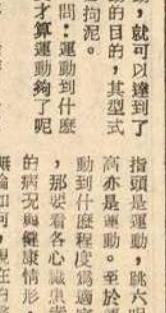 動，就可以達到了
的目的，其型式
拘泥。
問：運動到什麼
才算運動夠了呢
指頭是運動，跳六呎
高亦是運動。至於
動到什麼程度爲適
，那要看各心臟患
的病況與健康情形，
無論如何，現在的